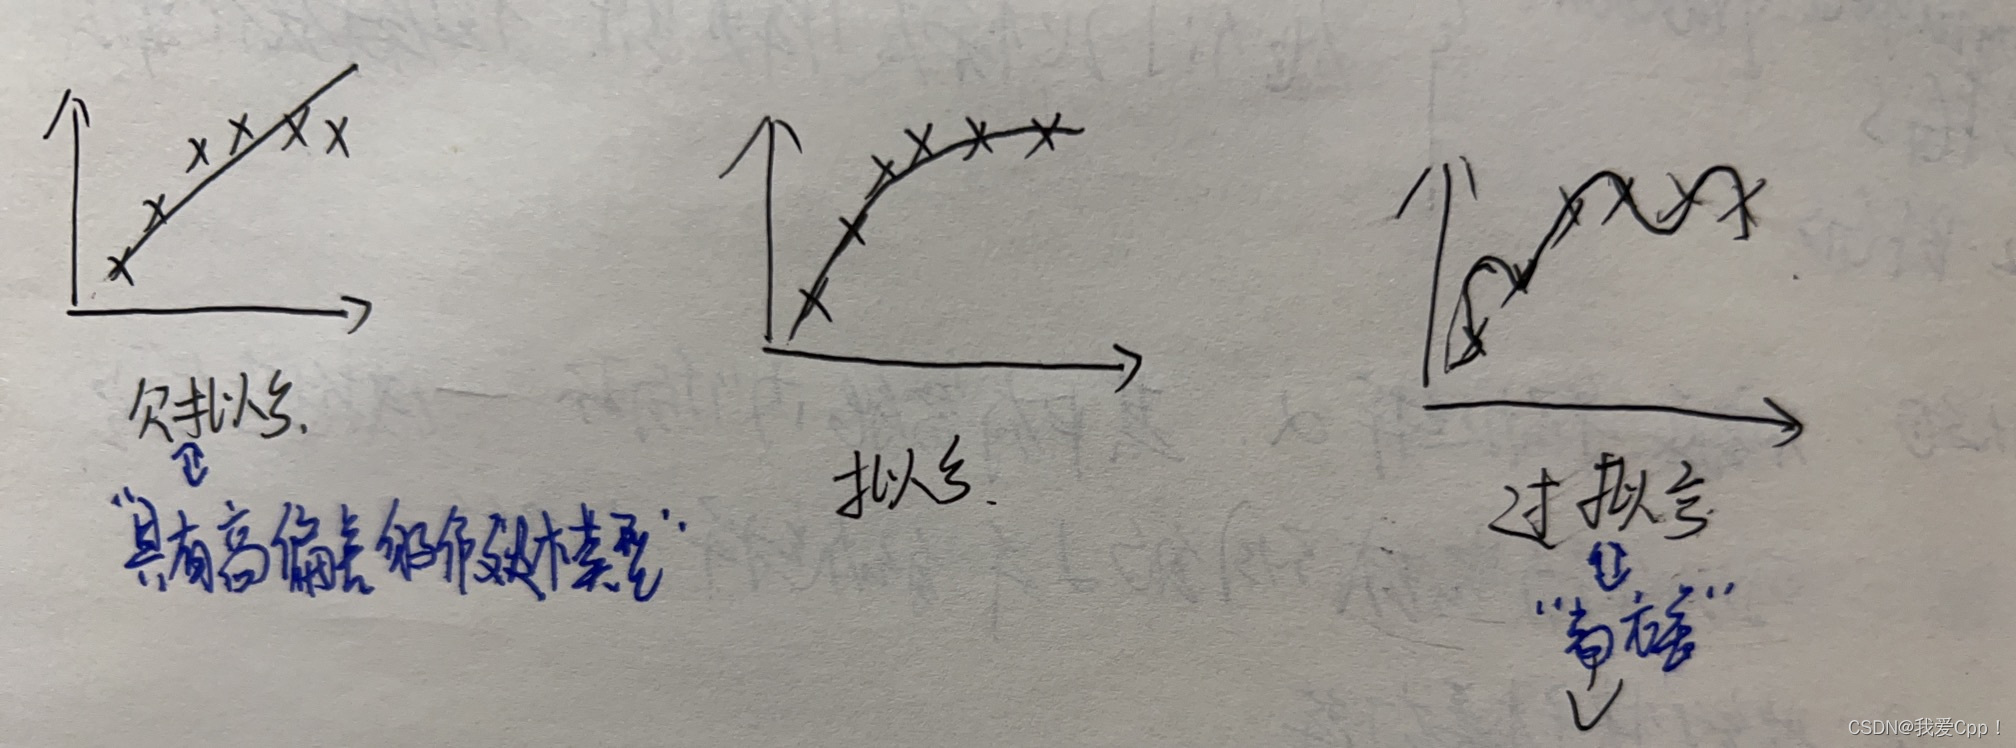 欠拟合.
拟合.
过拟合
"具有高偏差的有效模型"
"高方差"
CSDN@我爱Cpp！